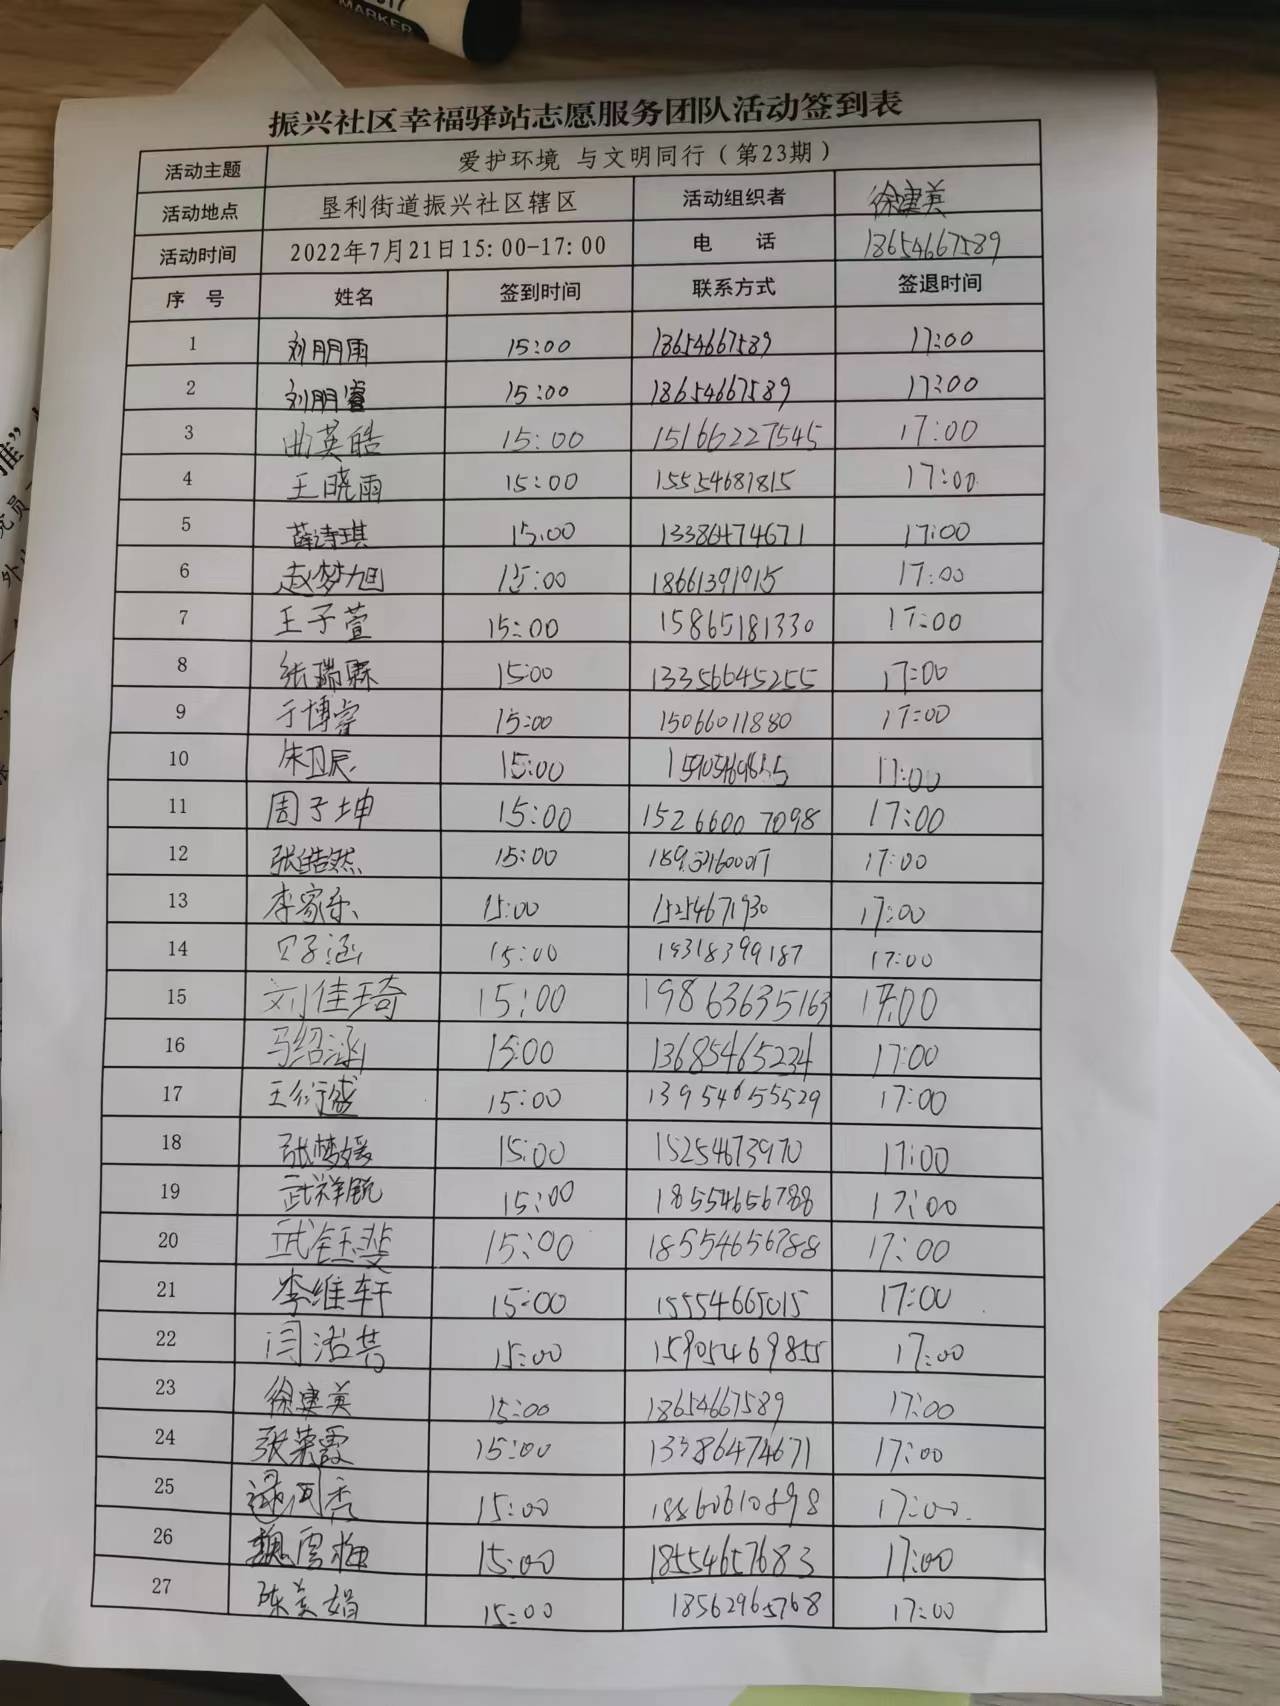 MARKER
振兴社区幸福驿站志愿服务团队活动签到表
活动主题 爱护环境 与文明同行（第23期）
活动地点 垦利街道振兴社区辖区 活动组织者 徐建美
活动时间 2022年7月21日15:00-17:00 电 话 18654667589
序 号 姓名 签到时间 联系方式 签退时间
1 刘朋雨 15:00 18654667589 17:00
2 刘朋睿 15:00 18654667589 17:00
3 曲英皓 15:00 15166227545 17:00
4 王晓雨 15:00 15554681815 17:00
5 薛诗琪 15:00 13386474671 17:00
6 赵梦旭 15:00 18661391915 17:00
7 王子萱 15:00 15865181330 17:00
8 张瑞霖 15:00 13356645255 17:00
9 于博睿 15:00 15066011880 17:00
10 朱卫辰 15:00 17:00
11 周子坤 15:00 15266007098 17:00
12 张皓然 15:00 17:00
13 李家乐 15:00 15254671930 17:00
14 子涵 15:00 17:00
15 刘佳琦 15:00 19863635163 17:00
16 马绍涵 15:00 13685465234 17:00
17 王衍盛 15:00 13954655529 17:00
18 张梦媛 15:00 15254673970 17:00
19 武祥 15:00 18554656788 17:00
20 武钰斐 15:00 18554656788 17:00
21 李维轩 15:00 15554665015 17:00
22 闫 15:00 15905469855 17:00
23 徐建美 15:00 18654667589 17:00
24 张荣霞 15:00 13386474671 17:00
25 15:00 17:00
26 魏雪梅 15:00 18554657683 17:00
27 陈美娟 15:00 18562965768 17:00